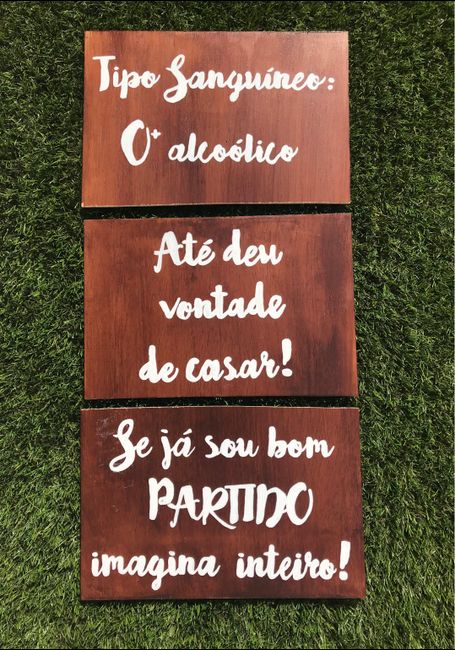 Tipo Sanguíneo:
O+ alcoólico
Até deu
vontade
de casar!
Se já sou bom
PARTIDO
imagina inteiro!